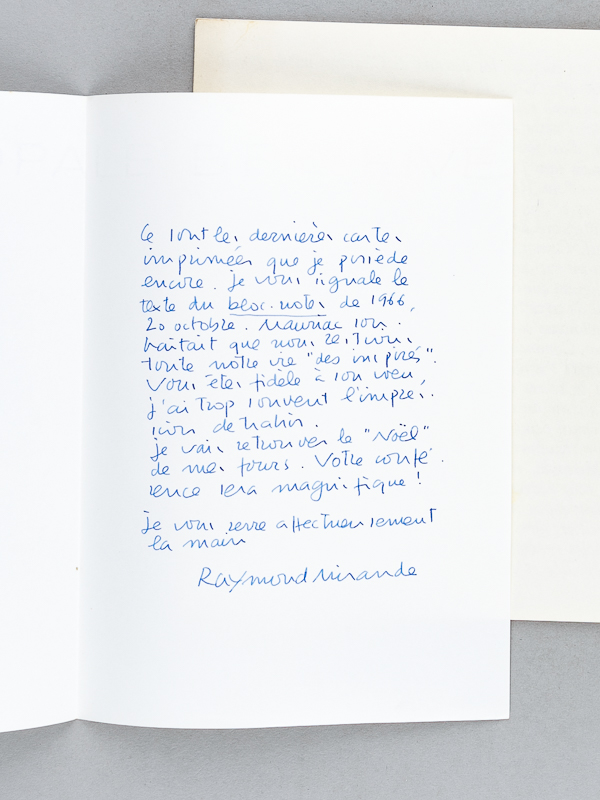 Ce sont les dernières cartes
imprimées que je possède
encore. Je vous signale le
texte du bloc-notes de 1966,
20 octobre. Mauriac sou-
haitait que nous restions
toute notre vie "des inspirés".
Vous êtes fidèle à son vœu,
j'ai trop souvent l'impres-
sion de trahir.
Je vais retrouver le "Noël"
de mes fours. Votre confé-
rence sera magnifique !
Je vous serre affectueusement
la main
Raymond Mirande